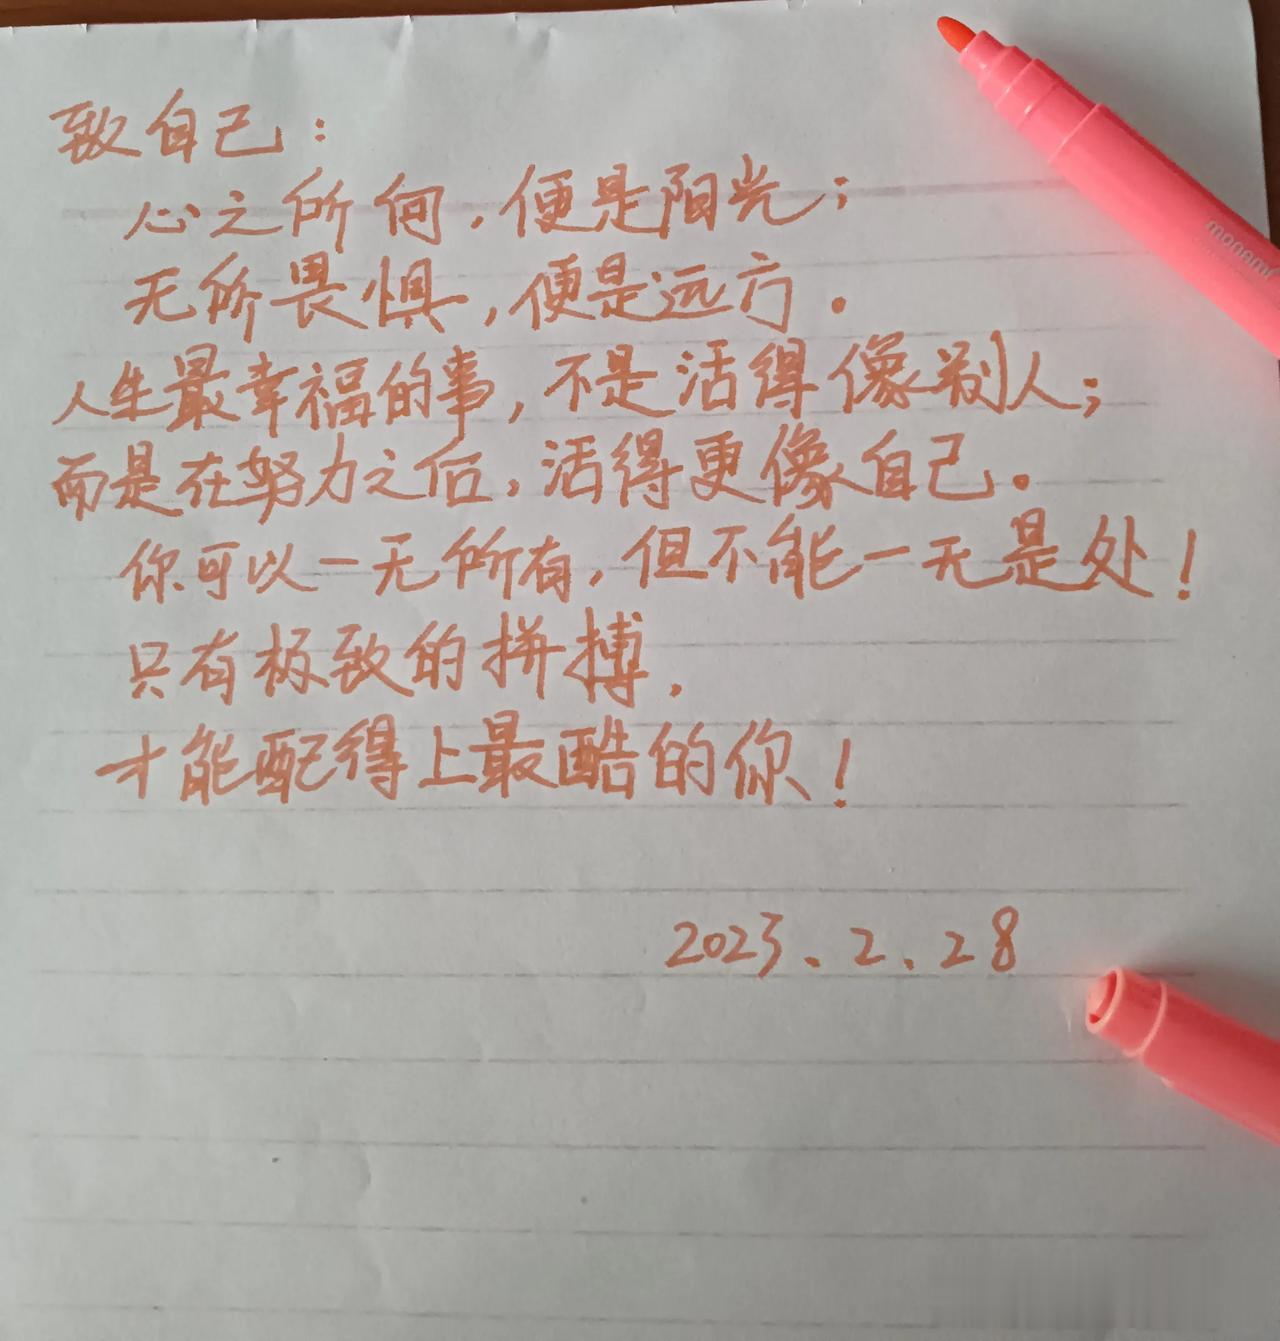 致自己：
心之所向，便是阳光；
无所畏惧，便是远方。
人生最幸福的事，不是活得像别人；
而是在努力之后，活得更像自己。
你可以一无所有，但不能一无是处！
只有极致的拼搏，
才能配得上最酷的你！
2023、2、28
monami